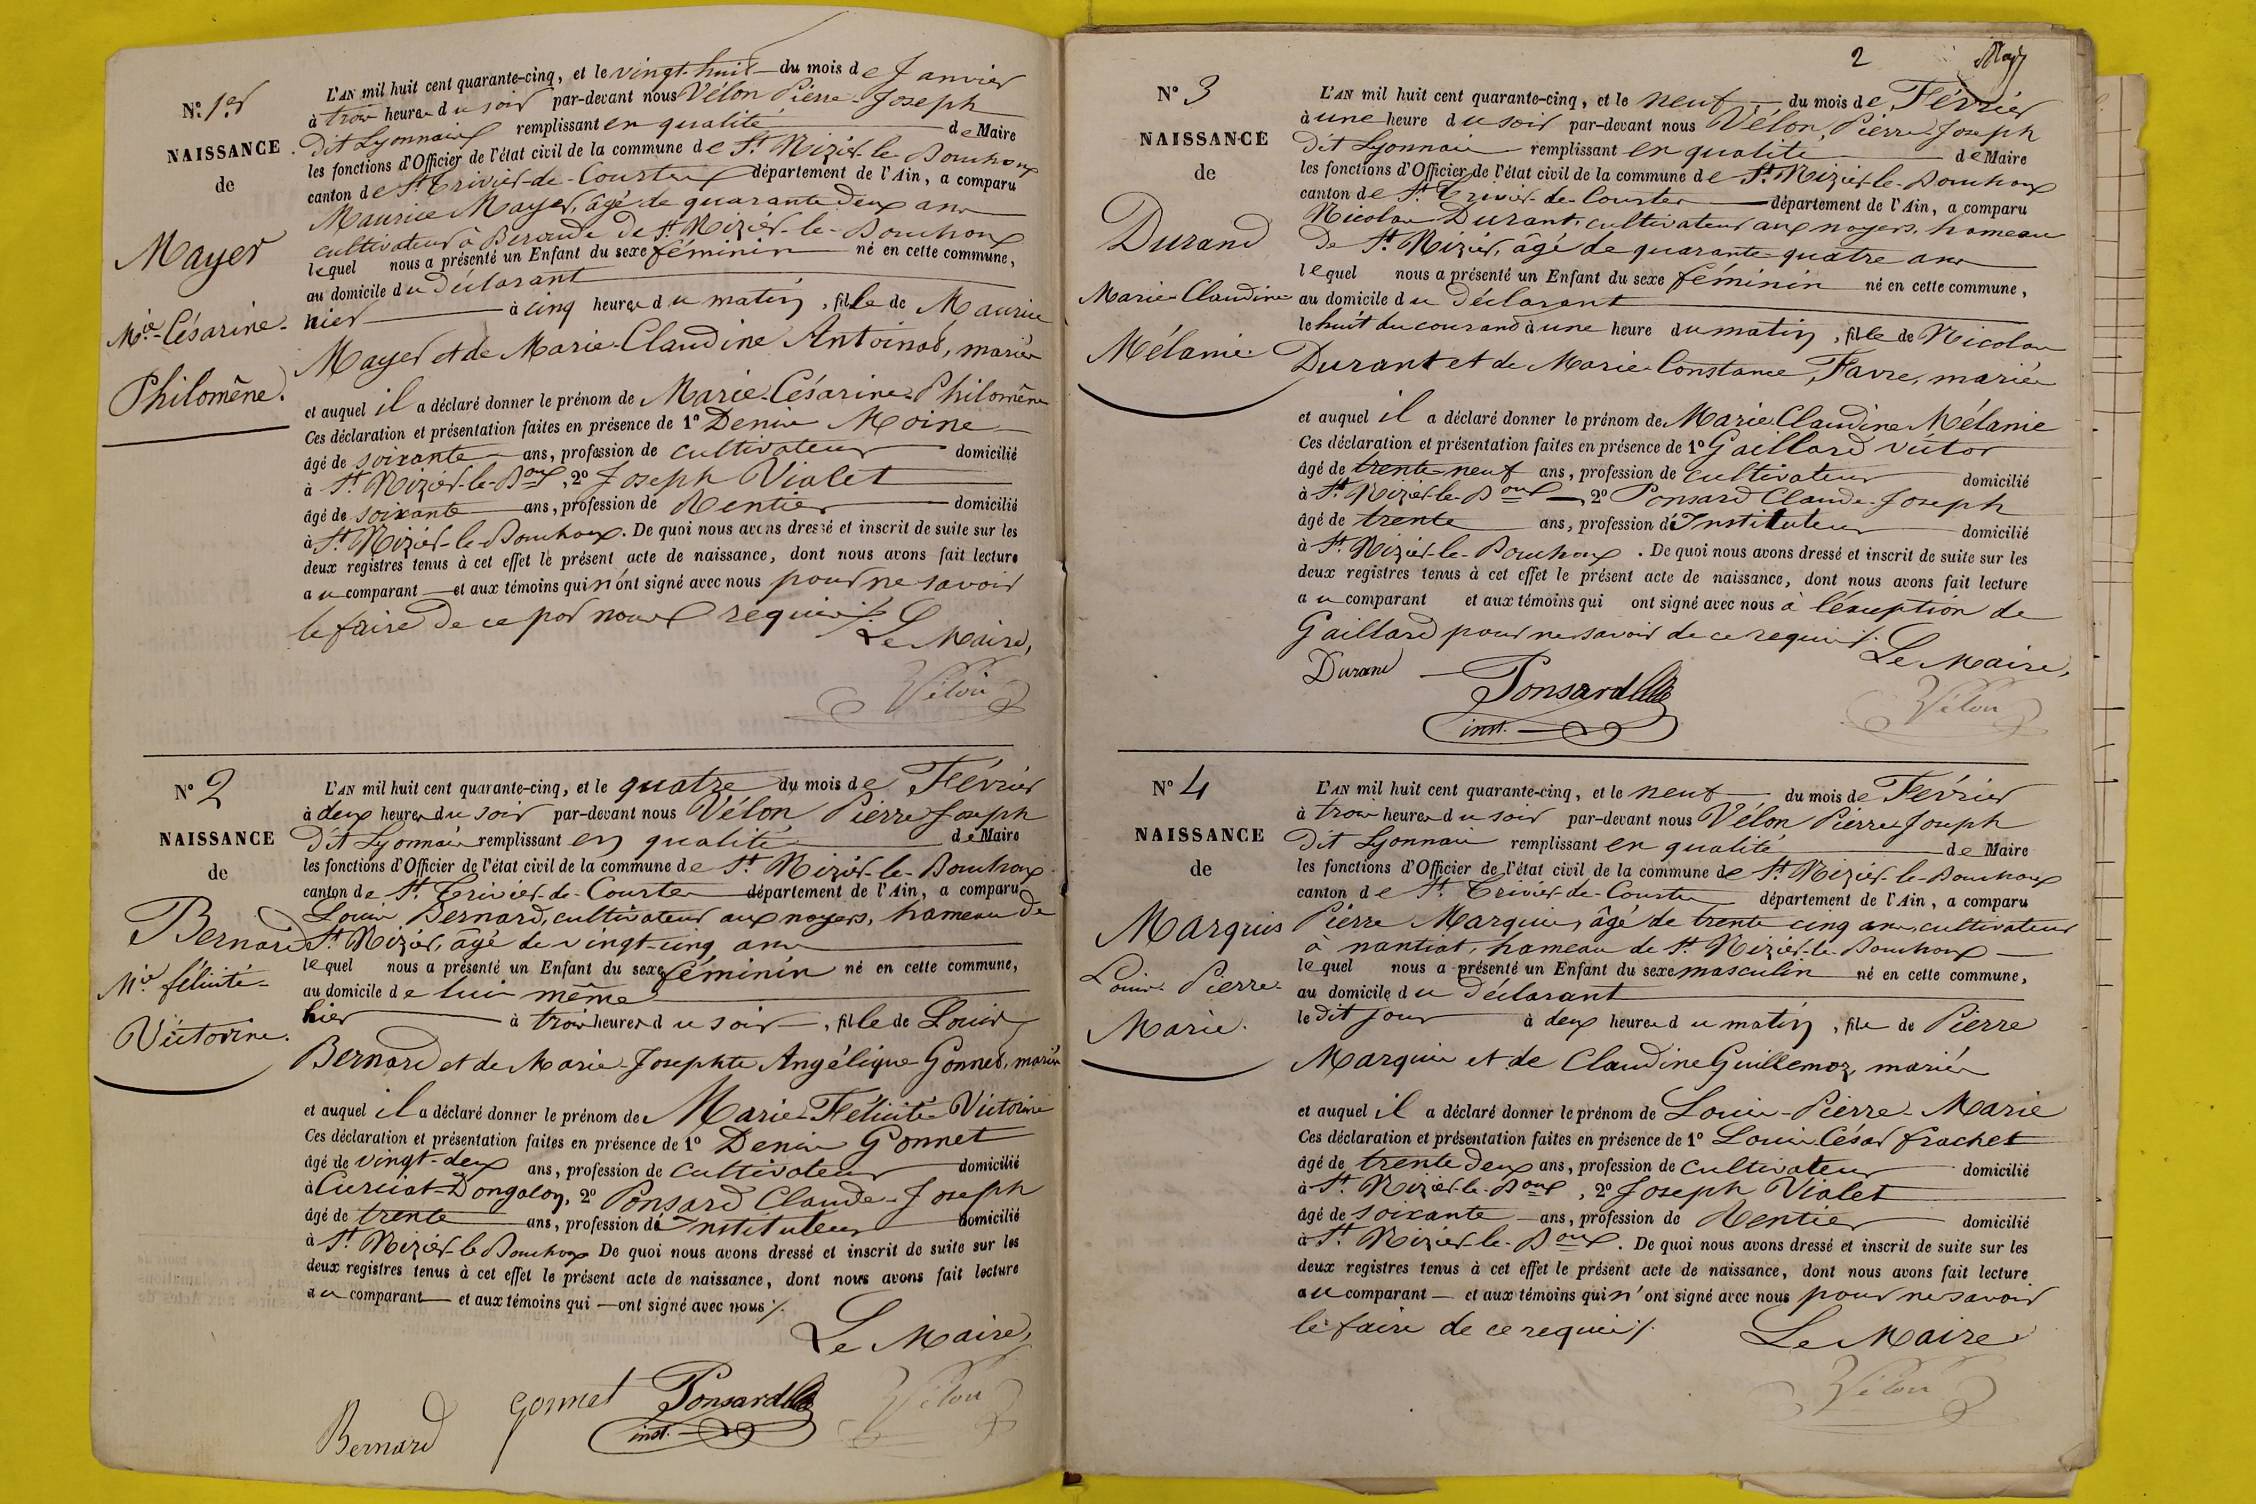 N.º 1.er
NAISSANCE
de
Mayer
M.ie Césarine
Philomêne.
L'AN mil huit cent quarante-cinq, et le vingt-huit du mois de Janvier
à trois heures du soir par-devant nous Vélon Pierre-Joseph
dit Lyonnais remplissant en qualité de Maire
les fonctions d'Officier de l'état civil de la commune de St. Nizier-le-Bouchoux
canton de St. Trivier-de-Courtes département de l'Ain, a comparu
Maurice Mayer, âgé de quarante deux ans
cultivateur à Beroude de St. Nizier-le-Bouchoux
lequel nous a présenté un Enfant du sexe féminin né en cette commune,
au domicile du déclarant
hier à cinq heures du matin, fille de Maurice
Mayer et de Marie-Claudine Antoinat, mariés
et auquel il a déclaré donner le prénom de Marie-Césarine-Philomêne
Ces déclaration et présentation faites en présence de 1º Denis Moine
âgé de soixante ans, profession de cultivateur domicilié
à St. Nizier-le-Boux, 2º Joseph Vialet
âgé de soixante ans, profession de Rentier domicilié
à St. Nizier-le-Bouchoux. De quoi nous avons dressé et inscrit de suite sur les
deux registres tenus à cet effet le présent acte de naissance, dont nous avons fait lecture
au comparant et aux témoins qui n'ont signé avec nous pour ne savoir
le faire de ce par nous requis ./.
Le Maire,
Vélon
Nº 2
NAISSANCE
de
Bernard
M.ie félicité
Victorine.
L'AN mil huit cent quarante-cinq, et le quatre du mois de Février
à deux heures du soir par-devant nous Vélon Pierre Joseph
dit Lyonnais remplissant en qualité de Maire
les fonctions d'Officier de l'état civil de la commune de St. Nizier-le-Bouchoux
canton de St. Trivier-de-Courtes département de l'Ain, a comparu
Louis Bernard, cultivateur aux noyers, hameau de
St. Nizier, âgé de vingt-cinq ans
lequel nous a présenté un Enfant du sexe féminin né en cette commune,
au domicile de lui même
hier à trois heures du soir, fille de Louis
Bernard et de Marie-Josephte Angélique Gonnet, mariés
et auquel il a déclaré donner le prénom de Marie-Félicité-Victorine
Ces déclaration et présentation faites en présence de 1º Denis Gonnet
âgé de vingt-deux ans, profession de cultivateur domicilié
à Curciat-Dongalon, 2º Ponsard Claude-Joseph
âgé de trente ans, profession d'Instituteur domicilié
à St. Nizier-le-Bouchoux De quoi nous avons dressé et inscrit de suite sur les
deux registres tenus à cet effet le présent acte de naissance, dont nous avons fait lecture
au comparant et aux témoins qui ont signé avec nous ./.
Le Maire,
Bernard gonnet Ponsard Vélon
inst.
2
Nº 3
NAISSANCE
de
Durand
Marie-Claudine
Mélanie
L'AN mil huit cent quarante-cinq, et le neuf du mois de Février
à une heure du soir par-devant nous Vélon, Pierre-Joseph
dit Lyonnais remplissant en qualité de Maire
les fonctions d'Officier de l'état civil de la commune de St. Nizier-le-Bouchoux
canton de St. Trivier-de-Courtes département de l'Ain, a comparu
Nicolas Durant, cultivateur aux noyers, hameau
de St. Nizier, âgé de quarante-quatre ans
lequel nous a présenté un Enfant du sexe féminin né en cette commune,
au domicile du déclarant
le huit du courant à une heure du matin, fille de Nicolas
Durant et de Marie-Constance Favre, mariés
et auquel il a déclaré donner le prénom de Marie Claudine Mélanie
Ces déclaration et présentation faites en présence de 1º Gaillard Victor
âgé de trente-neuf ans, profession de cultivateur domicilié
à St. Nizier-le-Boux, 2º Ponsard Claude-Joseph
âgé de trente ans, profession d'Instituteur domicilié
à St. Nizier-le-Bouchoux. De quoi nous avons dressé et inscrit de suite sur les
deux registres tenus à cet effet le présent acte de naissance, dont nous avons fait lecture
au comparant et aux témoins qui ont signé avec nous à l'éxception de
Gaillard pour ne savoir de ce requis ./.
Le Maire,
Durand Ponsard Vélon
inst.
Nº 4
NAISSANCE
de
Marquis
Louis-Pierre-
Marie.
L'AN mil huit cent quarante-cinq, et le neuf du mois de Février
à trois heures du soir par-devant nous Vélon Pierre-Joseph
dit Lyonnais remplissant en qualité de Maire
les fonctions d'Officier de l'état civil de la commune de St. Nizier-le-Bouchoux
canton de St. Trivier-de-Courtes département de l'Ain, a comparu
Pierre Marquis, âgé de trente cinq ans, cultivateur
à nantiat, hameau de St. Nizier-le-Bouchoux
lequel nous a présenté un Enfant du sexe masculin né en cette commune,
au domicile du déclarant
le dit jour à deux heures du matin, fils de Pierre
Marquis et de Claudine Guillemoz, mariés
et auquel il a déclaré donner le prénom de Louis-Pierre-Marie
Ces déclaration et présentation faites en présence de 1º Louis César frachet
âgé de trente deux ans, profession de cultivateur domicilié
à St. Nizier-le-Boux, 2º Joseph Vialet
âgé de soixante ans, profession de Rentier domicilié
à St. Nizier-le-Boux. De quoi nous avons dressé et inscrit de suite sur les
deux registres tenus à cet effet le présent acte de naissance, dont nous avons fait lecture
au comparant et aux témoins qui n'ont signé avec nous pour ne savoir
le faire de ce requis ./.
Le Maire
Vélon